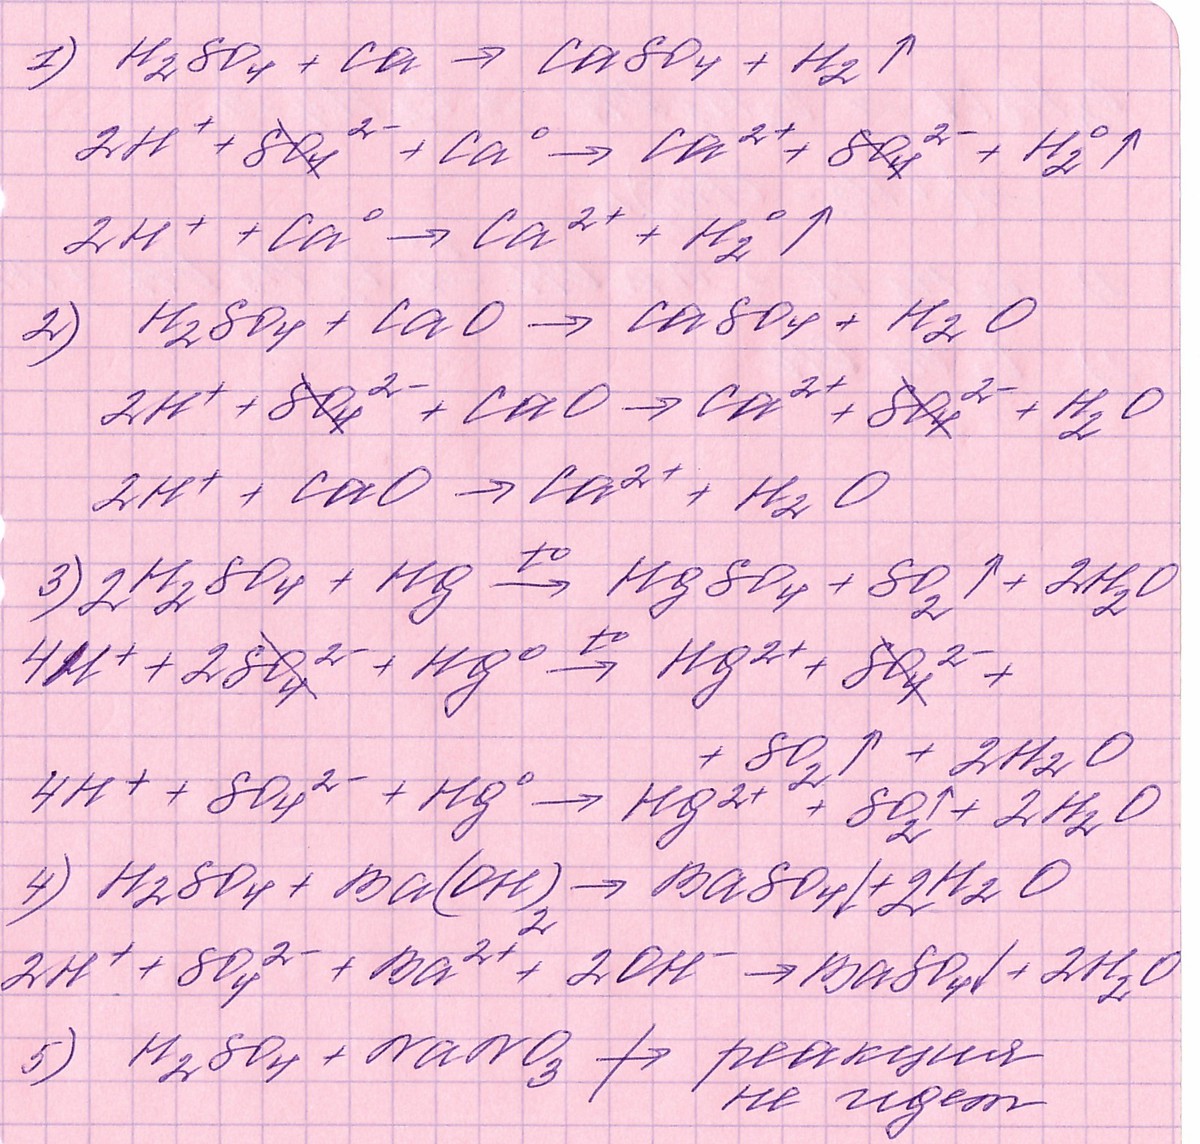 1) H₂SO₄ + Ca → CaSO₄ + H₂↑
2H⁺ + SO₄²⁻ + Ca⁰ → Ca²⁺ + SO₄²⁻ + H₂⁰↑
2H⁺ + Ca⁰ → Ca²⁺ + H₂⁰↑
2) H₂SO₄ + CaO → CaSO₄ + H₂O
2H⁺ + SO₄²⁻ + CaO → Ca²⁺ + SO₄²⁻ + H₂O
2H⁺ + CaO → Ca²⁺ + H₂O
3) 2H₂SO₄ + Hg t⁰→ HgSO₄ + SO₂↑ + 2H₂O
4H⁺ + 2SO₄²⁻ + Hg⁰ t⁰→ Hg²⁺ + SO₄²⁻ +
+ SO₂↑ + 2H₂O
4H⁺ + SO₄²⁻ + Hg⁰ → Hg²⁺ + SO₂↑ + 2H₂O
4) H₂SO₄ + Ba(OH)₂ → BaSO₄↓ + 2H₂O
2H⁺ + SO₄²⁻ + Ba²⁺ + 2OH⁻ → BaSO₄↓ + 2H₂O
5) H₂SO₄ + NaNO₃ ↛ реакция
не идет